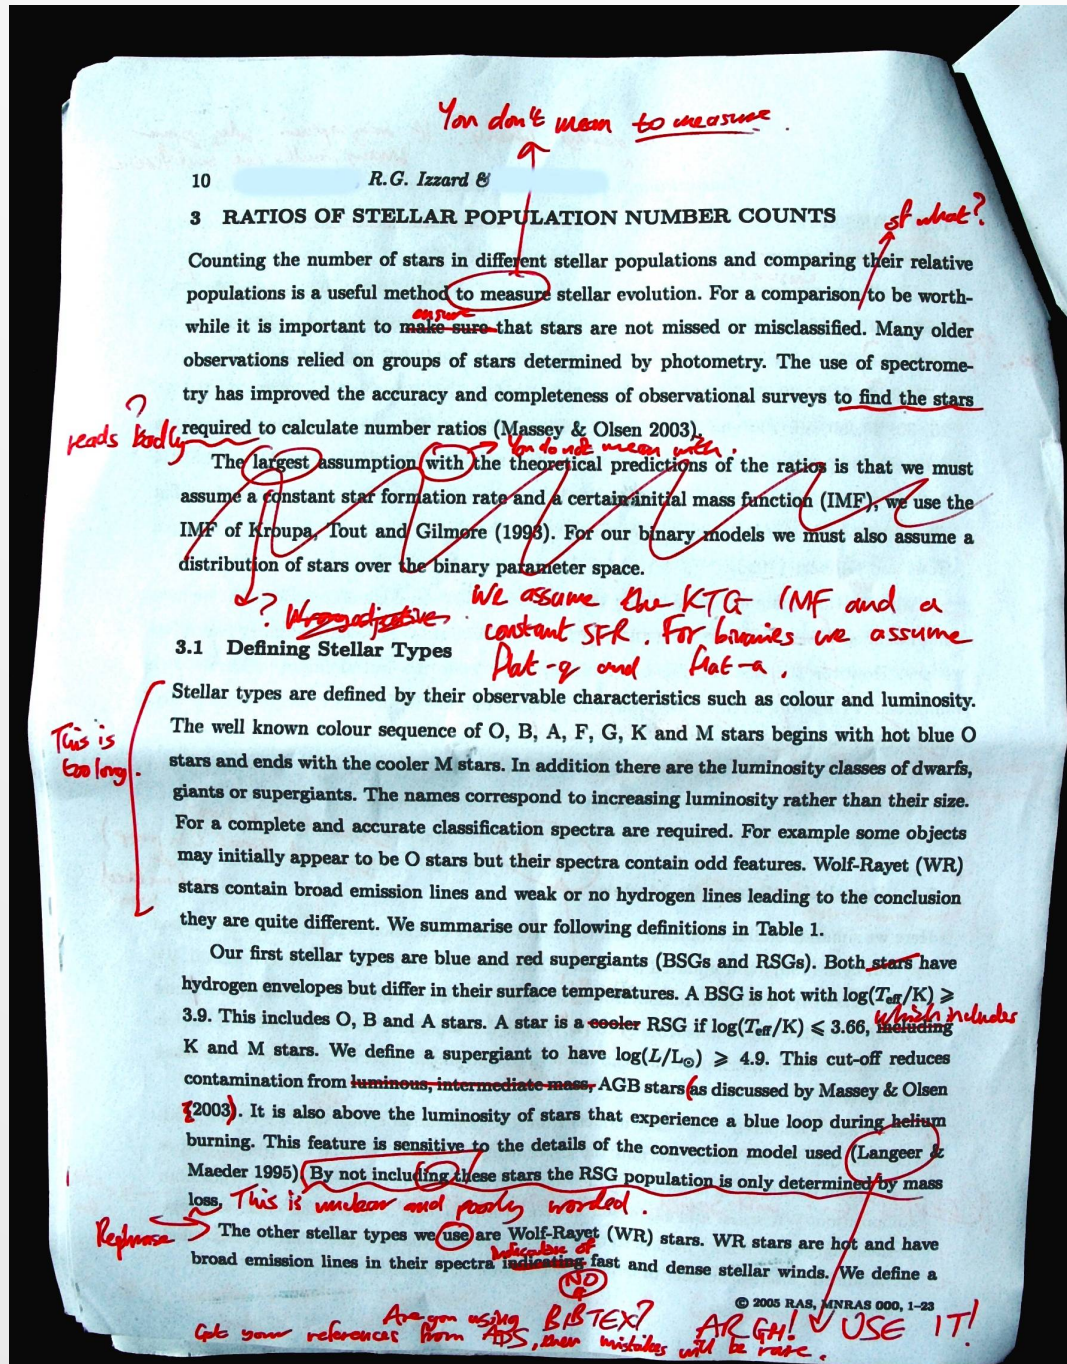 You don't mean to measure.
10 R.G. Izzard &
3 RATIOS OF STELLAR POPULATION NUMBER COUNTS
of what?
Counting the number of stars in different stellar populations and comparing their relative
populations is a useful method to measure stellar evolution. For a comparison to be worth-
ensure
while it is important to make sure that stars are not missed or misclassified. Many older
observations relied on groups of stars determined by photometry. The use of spectrome-
try has improved the accuracy and completeness of observational surveys to find the stars
?
reads badly
required to calculate number ratios (Massey & Olsen 2003).
You do not mean with.
The largest assumption with the theoretical predictions of the ratios is that we must
assume a constant star formation rate and a certain initial mass function (IMF), we use the
IMF of Kroupa, Tout and Gilmore (1993). For our binary models we must also assume a
distribution of stars over the binary parameter space.
? Wrong adjective.
We assume the KTG IMF and a
constant SFR. For binaries we assume
flat-q and flat-a.
3.1 Defining Stellar Types
This is
too long.
Stellar types are defined by their observable characteristics such as colour and luminosity.
The well known colour sequence of O, B, A, F, G, K and M stars begins with hot blue O
stars and ends with the cooler M stars. In addition there are the luminosity classes of dwarfs,
giants or supergiants. The names correspond to increasing luminosity rather than their size.
For a complete and accurate classification spectra are required. For example some objects
may initially appear to be O stars but their spectra contain odd features. Wolf-Rayet (WR)
stars contain broad emission lines and weak or no hydrogen lines leading to the conclusion
they are quite different. We summarise our following definitions in Table 1.
Our first stellar types are blue and red supergiants (BSGs and RSGs). Both stars have
hydrogen envelopes but differ in their surface temperatures. A BSG is hot with log(Teff/K) ⩾
which includes
3.9. This includes O, B and A stars. A star is a cooler RSG if log(Teff/K) ⩽ 3.66, including
K and M stars. We define a supergiant to have log(L/L⊙) ⩾ 4.9. This cut-off reduces
contamination from luminous, intermediate mass, AGB stars (as discussed by Massey & Olsen
(2003). It is also above the luminosity of stars that experience a blue loop during helium
burning. This feature is sensitive to the details of the convection model used (Langeer &
Maeder 1995) By not including these stars the RSG population is only determined by mass
loss,
This is unclear and poorly worded.
Rephrase
The other stellar types we use are Wolf-Rayet (WR) stars. WR stars are hot and have
indicative of
broad emission lines in their spectra indicating fast and dense stellar winds. We define a
NO
© 2005 RAS, MNRAS 000, 1–23
Are you using BIBTEX? ARGH! USE IT!
Get your references from ADS, then mistakes will be rare.